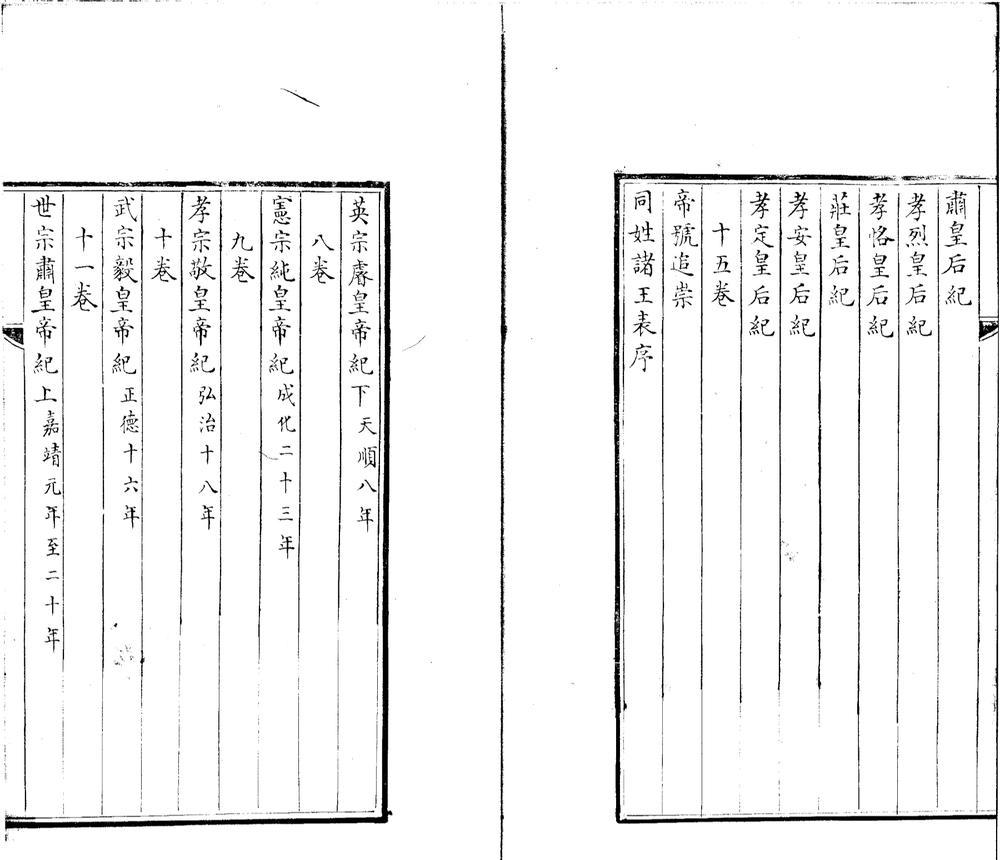 肅皇后紀
孝烈皇后紀
孝恪皇后紀
莊皇后紀
孝安皇后紀
孝定皇后紀
十五卷
帝號追崇
同姓諸王表序
英宗睿皇帝紀下天順八年
八卷
憲宗純皇帝紀成化二十三年
九卷
孝宗敬皇帝紀弘治十八年
十卷
武宗毅皇帝紀正德十六年
十一卷
世宗肅皇帝紀上嘉靖元年至二十年